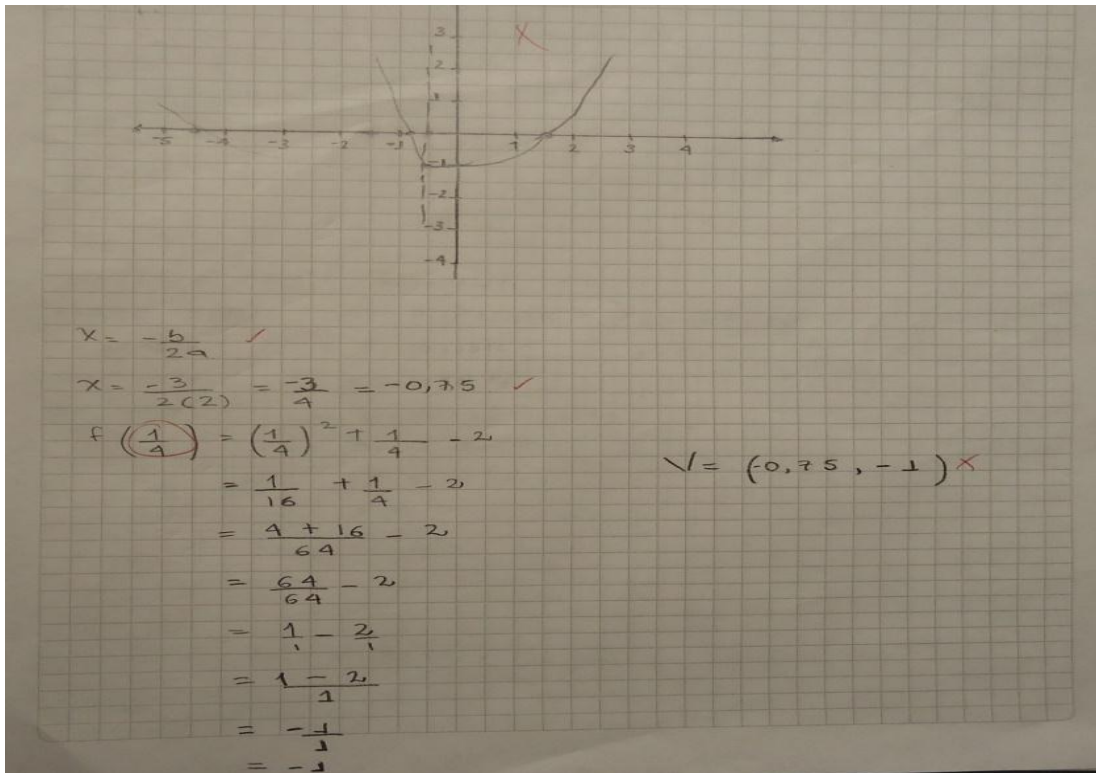 3
2
1
-5 -4 -3 -2 -1 1 2 3 4
-1
-2
-3
-4
x = -b/2a ✓
x = -3/2(2) = -3/4 = -0,75 ✓
f(1/4) = (1/4)² + 1/4 - 2
= 1/16 + 1/4 - 2
V = (-0,75, -1) ×
= 4 + 16/64 - 2
= 64/64 - 2
= 1/1 - 2/1
= 1 - 2/1
= -1/1
= -1